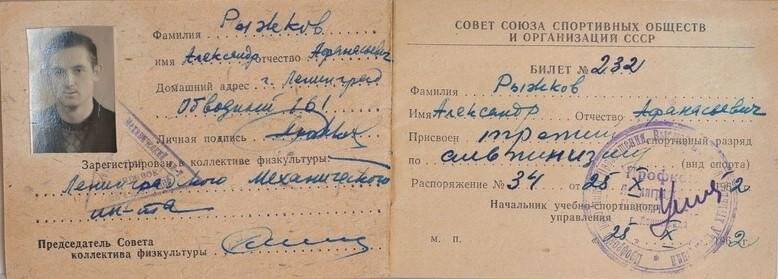 Фамилия Рыжков
имя Александр отчество Афанасьевич
Домашний адрес г. Ленинград
Обводный 161
Личная подпись
Зарегистрирован в коллективе физкультуры:
Ленинградского Механического
ин-та
Председатель Совета
коллектива физкультуры
СОВЕТ СОЮЗА СПОРТИВНЫХ ОБЩЕСТВ
И ОРГАНИЗАЦИЙ СССР
БИЛЕТ № 232
Фамилия Рыжков
Имя Александр Отчество Афанасьевич
Присвоен третий спортивный разряд
по альпинизму (вид спорта)
Распоряжение № 34 от 25 X 1962
Начальник учебно-спортивного
управления
М. П. 25 X 1962 г.